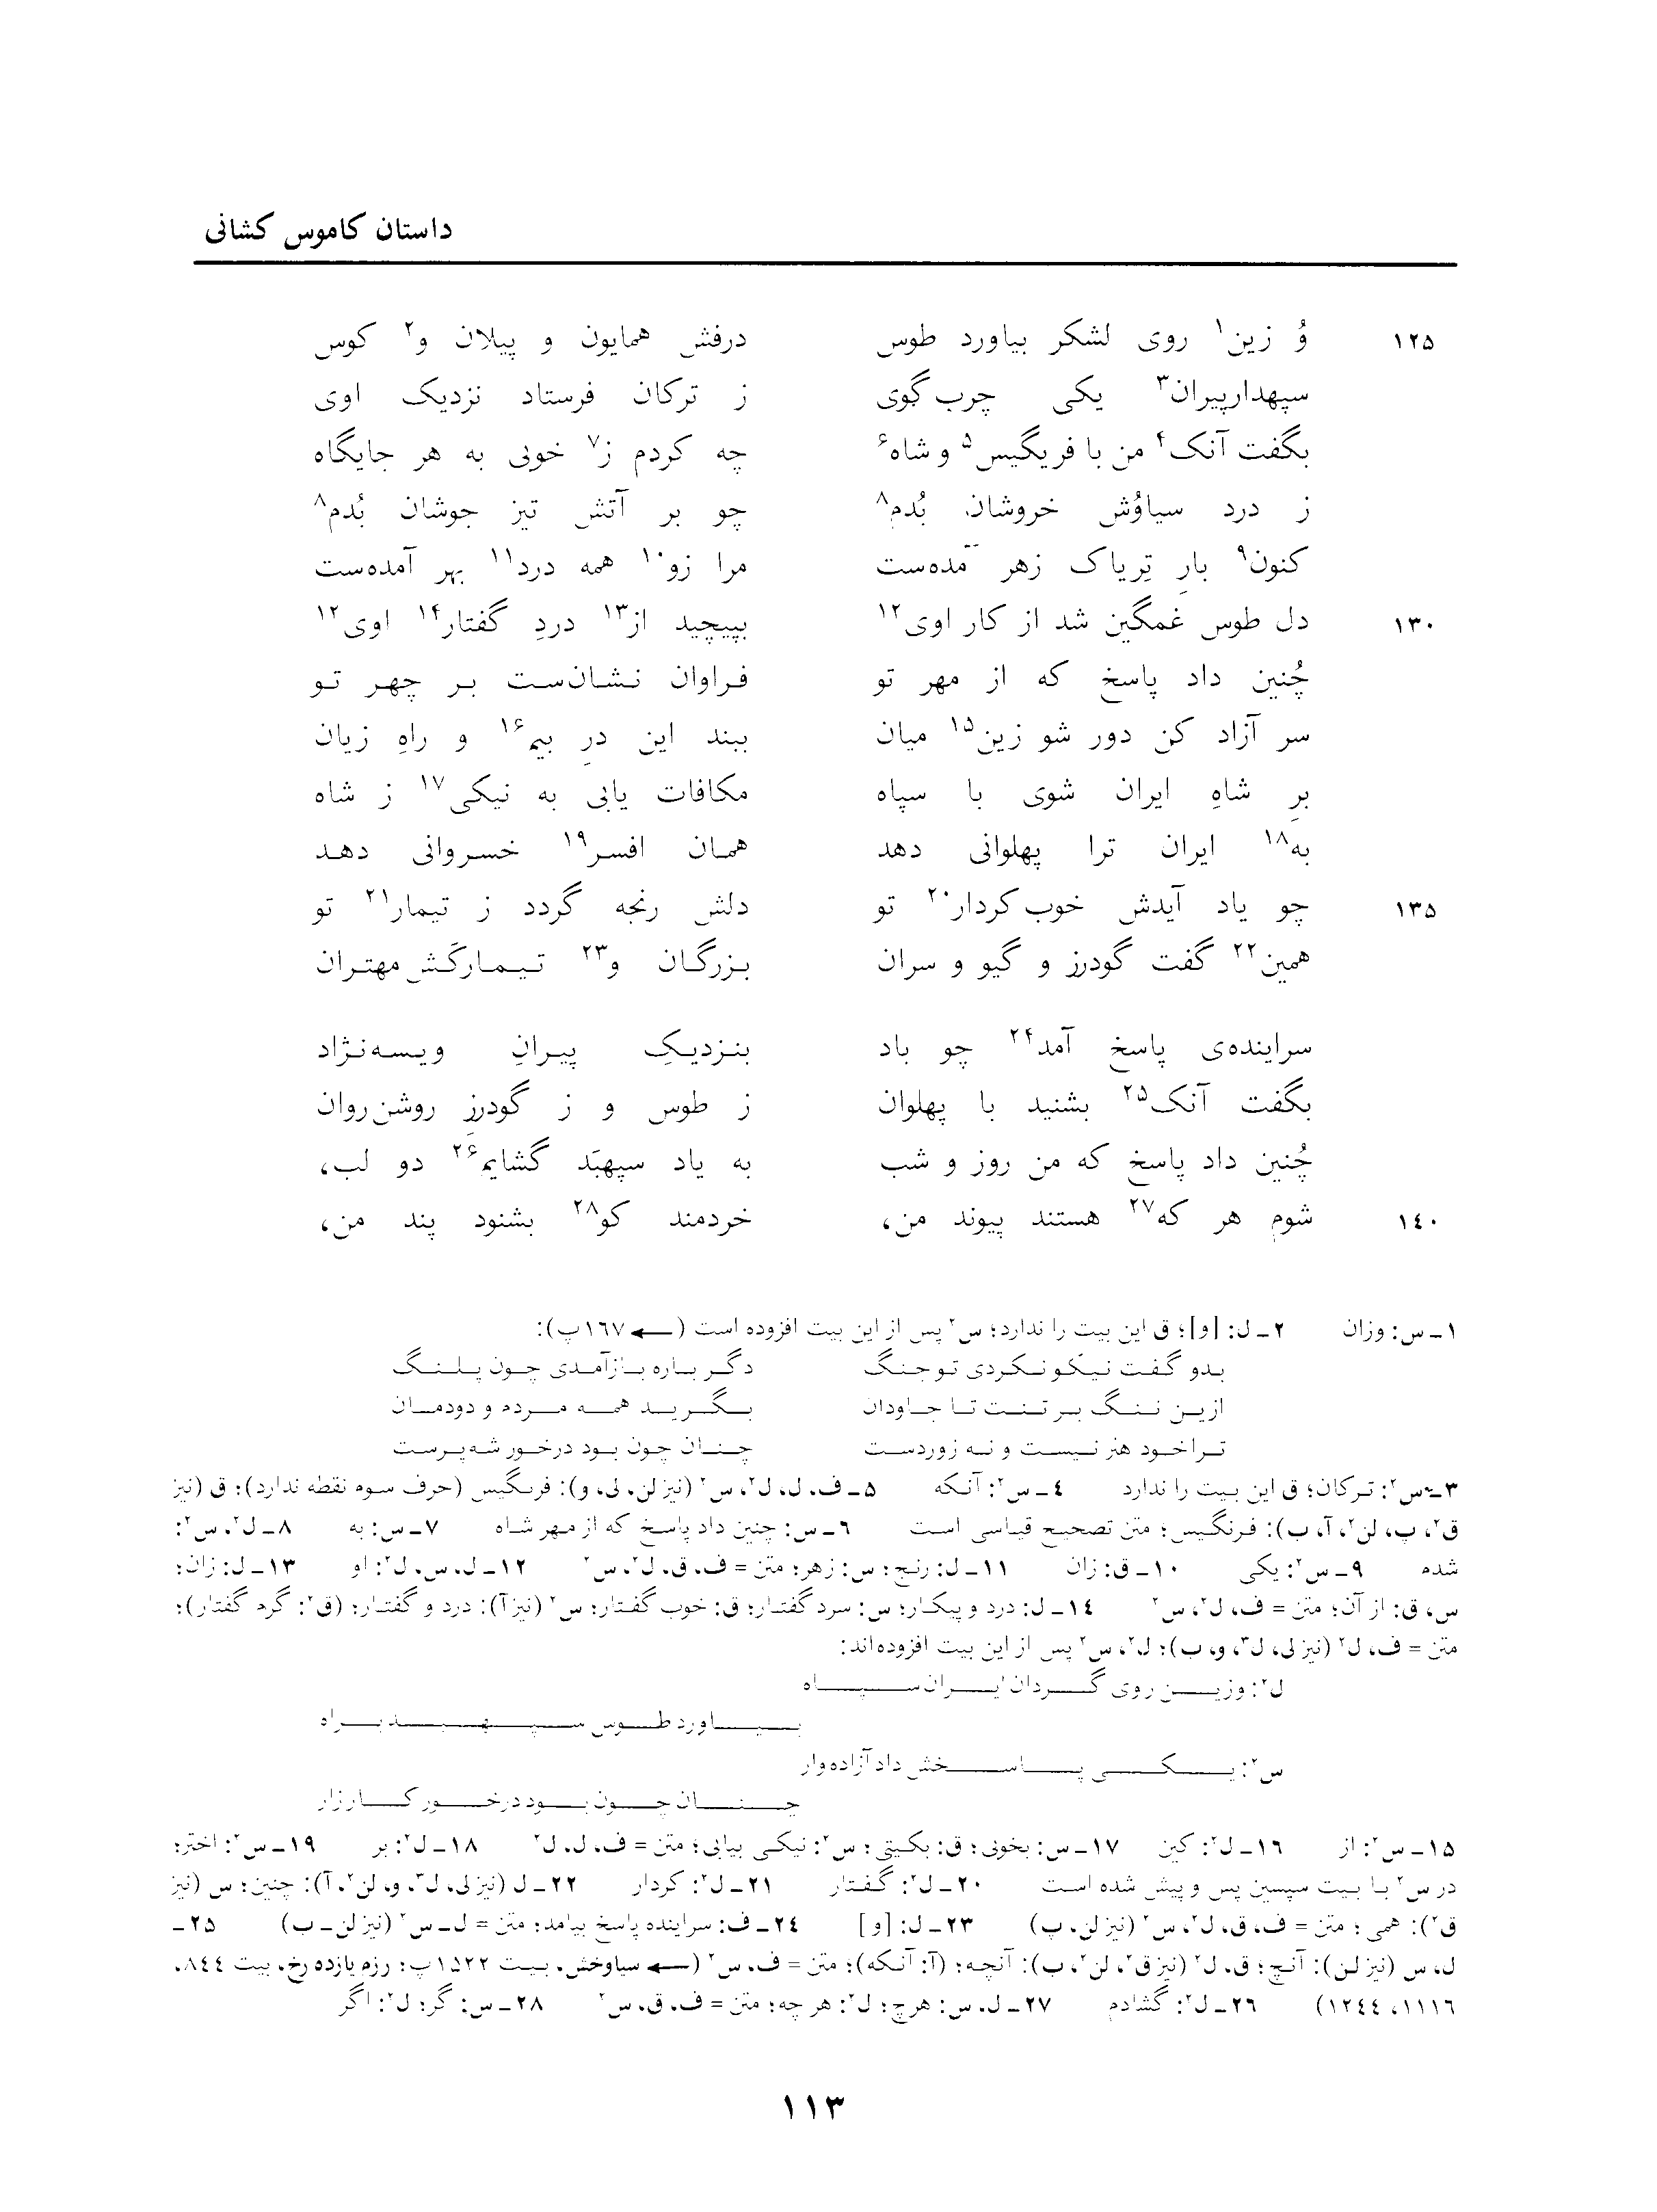 داستان کاموس کشانی
۱۲۵ وُ زین۱ روی لشکر بیاورد طوس درفش همایون و پیلان و۲ کوس
سپهدار پیران۳ یکی چرب گوی ز ترکان فرستاد نزدیک اوی
بگفت آنک۴ من با فریگیس۵ و شاه۶ چه کردم ز۷ خوبی به هر جایگاه
ز درد سیاوُش خروشان بُدم۸ چو بر آتش تیز جوشان بُدم۸
کنون۹ بارِ تِریاک زهر آمده‌ست مرا زو۱۰ همه درد۱۱ بهر آمده‌ست
۱۳۰ دل طوس غمگین شد از کار اوی۱۲ بپیچید از۱۳ دردِ گفتار۱۴ اوی۱۲
چُنین داد پاسخ که از مهر تو فراوان نشان‌ست بر چهر تو
سر آزاد کن دور شو زین۱۵ میان ببند این درِ بیم۱۶ و راهِ زیان
برِ شاهِ ایران شوی با سپاه مکافات یابی به نیکی۱۷ ز شاه
به۱۸ ایران ترا پهلوانی دهد همان افسر۱۹ خسروانی دهد
۱۳۵ چو یاد آیدش خوب کردار۲۰ تو دلش رنجه گردد ز تیمار۲۱ تو
همین۲۲ گفت گودرز و گیو و سران بزرگان و۲۳ تیمارکَش مهتران
سراینده‌ی پاسخ آمد۲۴ چو باد بنزدیکِ پیرانِ ویسه‌نژاد
بگفت آنک۲۵ بشنید با پهلوان ز طوس و ز گودرزِ روشن‌روان
چُنین داد پاسخ که من روز و شب به یاد سپهبَد گشایم۲۶ دو لب،
۱۴۰ شوم هر که۲۷ هستند پیوند من، خردمند کو۲۸ بشنود پند من،
۱ـ س: وزان ۲ـ ل: [و]؛ ق این بیت را ندارد؛ س۲ پس از این بیت افزوده است (← ۱۶۷پ):
بدو گفت نیکو نکردی تو جنگ دگر باره بازآمدی چون پلنگ
ازین ننگ بر تنت تا جاودان بگرید همه مردم و دودمان
ترا خود هنر نیست و نه زور دست چنان چون بود درخور شه‌پرست
۳ـ س۲: ترکان؛ ق این بیت را ندارد ۴ـ س۲: آنکه ۵ـ ف، ل، ل۲، س۲ (نیز لن، لی، و): فرنگیس (حرف سوم نقطه ندارد)؛ ق (نیز
ق۲، پ، لن۲، آ، ب): فرنگیس؛ متن تصحیح قیاسی است ۶ـ س: چنین داد پاسخ که از مهر شاه ۷ـ س: به ۸ـ ل۲، س۲:
شده ۹ـ س۲: یکی ۱۰ـ ق: زان ۱۱ـ ل: رنج؛ س: زهر؛ متن = ف، ق، ل۲، س۲ ۱۲ـ ل، س، ل۲: او ۱۳ـ ل: زان؛
س، ق: از آن؛ متن = ف، ل۲، س۲ ۱۴ـ ل: درد و پیکار؛ س: سرد گفتار؛ ق: خوب گفتار؛ س۲ (نیز آ): درد و گفتار؛ (ق۲: گرم گفتار)؛
متن = ف، ل۲ (نیز لی، ل۳، و، ب)؛ ل۲، س۲ پس از این بیت افزوده‌اند:
ل۲: وزین روی گردان ایران سپاه
بیاورد طوس سپهبد براه
س۲: یکی پاسخش داد آزاده‌وار
چنان چون بود درخور کارزار
۱۵ـ س۲: از ۱۶ـ ل۲: کین ۱۷ـ س: بخوبی؛ ق: بکیتی؛ س۲: نیکی بیابی؛ متن = ف، ل، ل۲ ۱۸ـ ل۲: بر ۱۹ـ س۲: اختر؛
در س۲ با بیت سپسین پس و پیش شده است ۲۰ـ ل۲: گفتار ۲۱ـ ل۲: کردار ۲۲ـ ل (نیز لی، ل۳، و، لن۲، آ): چنین؛ س (نیز
ق۲): همی؛ متن = ف، ق، ل۲، س۲ (نیز لن، پ) ۲۳ـ ل: [و] ۲۴ـ ف: سراینده پاسخ بیامد؛ متن = ل ـ س۲ (نیز لن ـ ب) ۲۵ـ
ل، س (نیز لن): آنچ؛ ق، ل۲ (نیز ق۲، لن۲، ب): آنچه؛ (آ: آنکه)؛ متن = ف، س۲ (← سیاوخش، بیت ۱۵۲۲پ؛ رزم یازده رخ، بیت ۸۴۴،
۱۱۱۶، ۱۲۴۴) ۲۶ـ ل۲: گشادم ۲۷ـ ل، س: هرچ؛ ل۲: هر چه؛ متن = ف، ق، س۲ ۲۸ـ س: گر؛ ل۲: اگر
۱۱۳